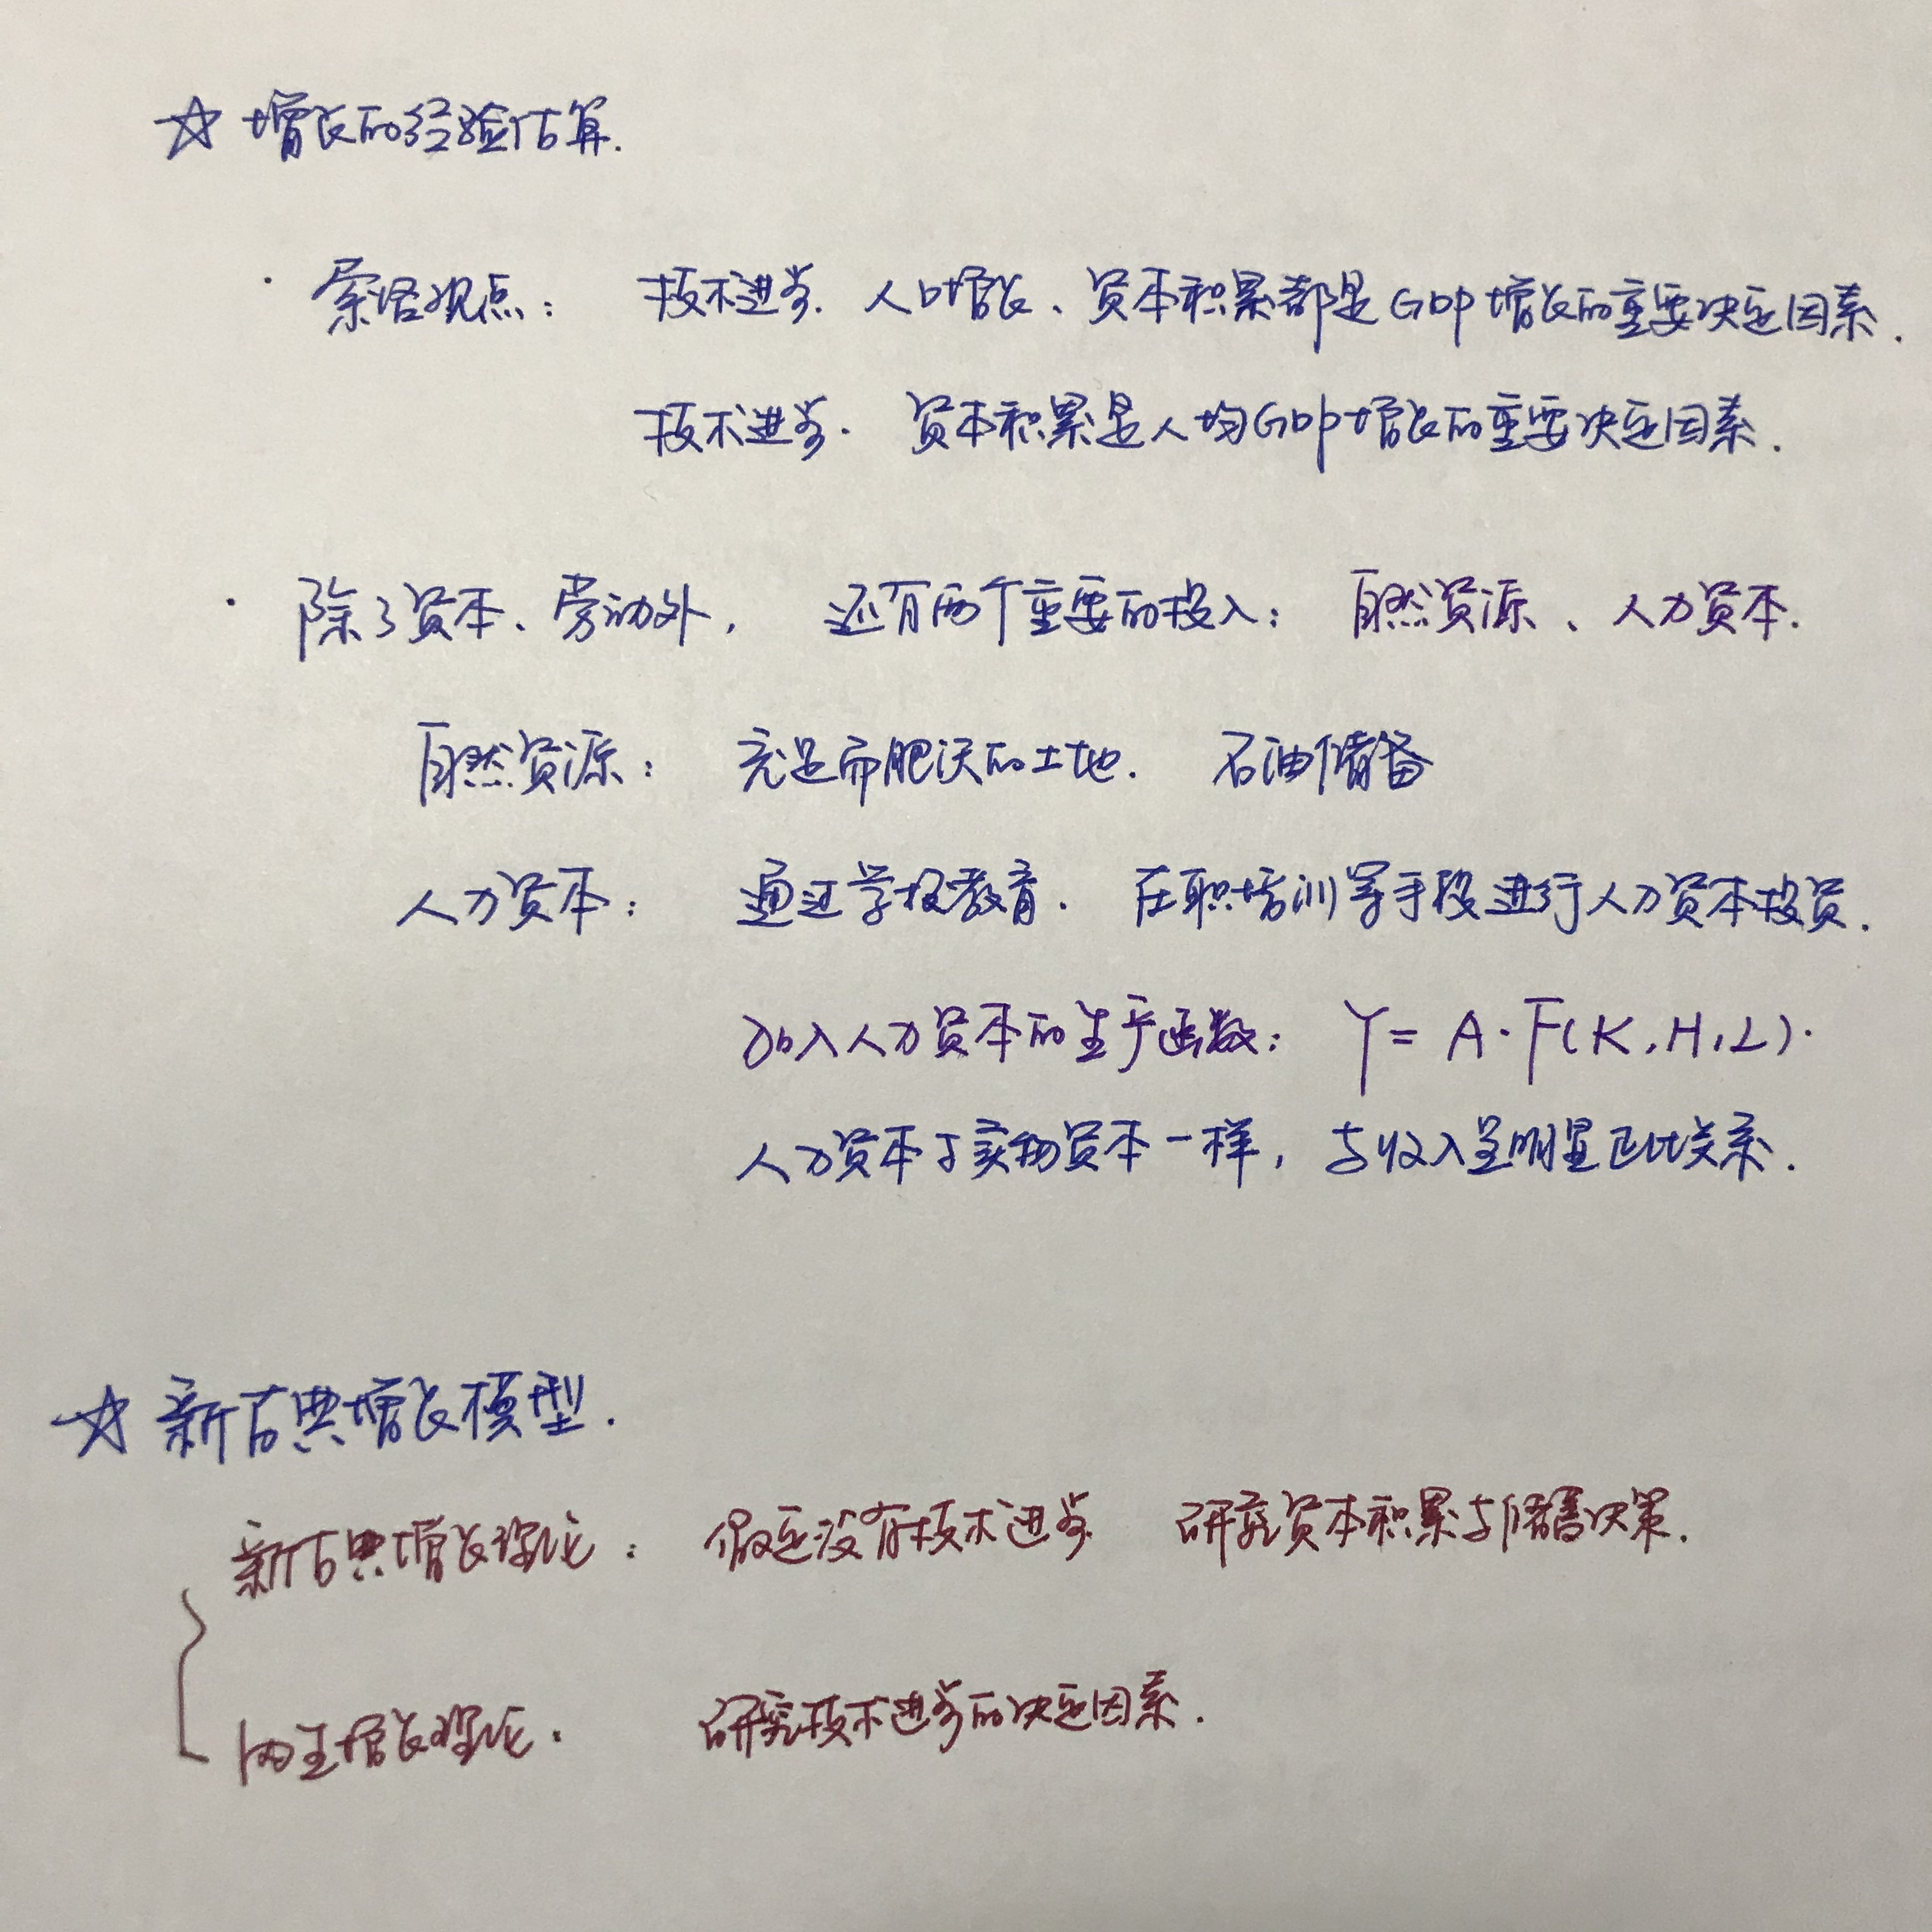 ☆ 增长的经验估算.
· 索洛观点： 技术进步. 人口增长、资本积累都是GDP增长的重要决定因素.
技术进步. 资本积累是人均GDP增长的重要决定因素.
· 除了资本、劳动外， 还有两个重要的投入： 自然资源、人力资本.
自然资源： 充足而肥沃的土地. 石油储备
人力资本： 通过学校教育. 在职培训等手段进行人力资本投资.
加入人力资本的生产函数： Y = A·F(K,H,L).
人力资本与实物资本一样，与收入呈明显正比关系.
☆ 新古典增长模型.
新古典增长理论： 假定没有技术进步 研究资本积累与储蓄决策.
内生增长理论. 研究技术进步的决定因素.